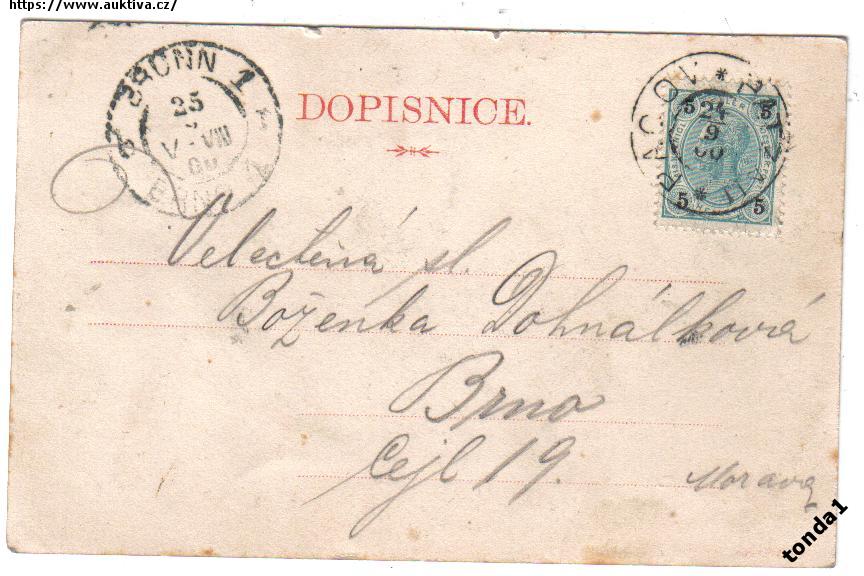 https://www.auktiva.cz/
BRÜNN 1
25
9
V-VIII
00
BRNO 1
DOPISNICE.
24
9
00
5 5
5 5
Velectěná sl.
Boženka Dohnálková
Brno
Cejl 19.
Morava
tonda1